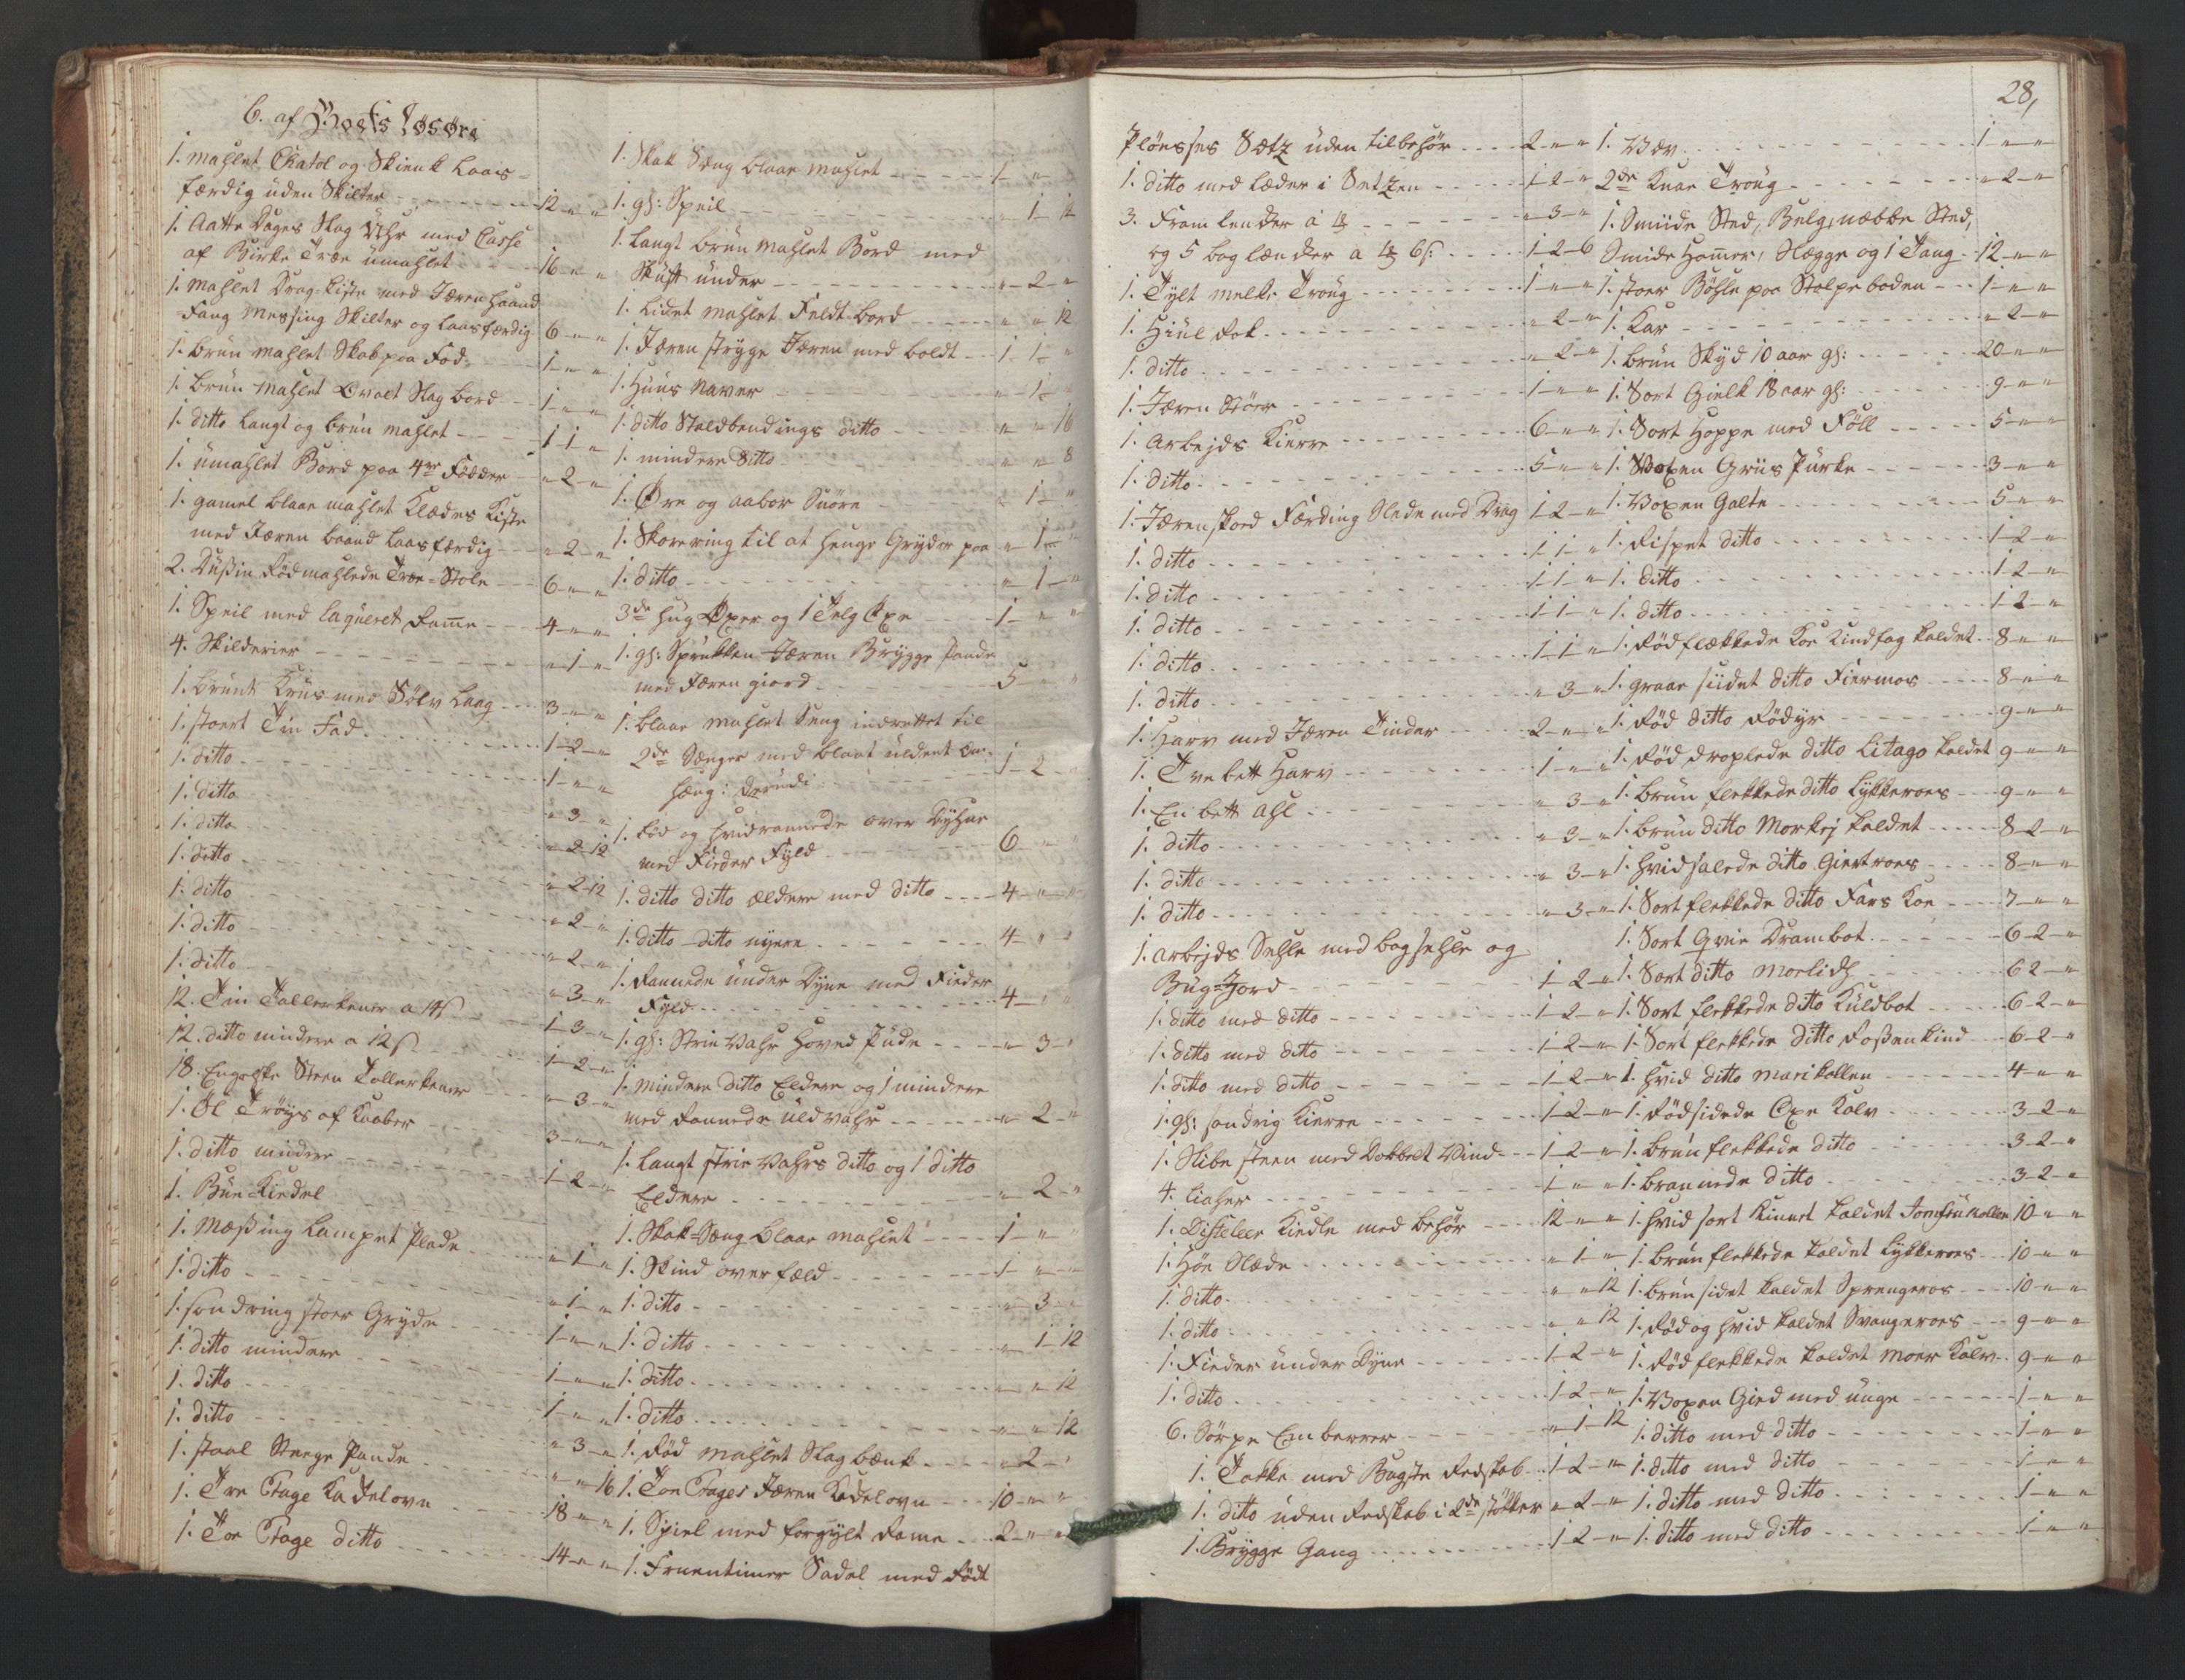 6. af Boets Løsøre
1. mahlet Chatol og Skienk Laas-
færdig uden Skilter 12 " "
1. Aatte Dages Slag Uhr med Casse
af Birke Træ umahlet 16 " "
1. mahlet Drag-Kiste med Jæren Haand
Fang Messing Skilter og Laasfærdig 6 " "
1. Brun mahlet Skab paa Fod 1 " "
1. brun mahlet Ovalt Slag bord 1 " "
1. ditto Langt og brun mahlet 1 1 "
1. umahlet Bord paa 4re Fødder " 2 "
1. gamel blaae mahlet Klædes Kiste
med Jæren baand Laasfærdig " 2 "
2. Dusin Rødmahlede Træ-Stole 6 " "
1. Speil med Laqueret Rame 4 " "
4. Skilderier " 1 "
1. brunt Krus med Sølv Laag 3 " "
1. stoert Tin Fad 1 2 "
1. ditto 1 " "
1. ditto " 3 "
1. ditto " 2 12
1. ditto " 2 12
1. ditto " 2 "
1. ditto " 2 "
1. ditto " 3 "
12. Tin Tallerkener a 14 s 1 3 "
12. ditto mindere a 12 s 1 2 "
18. Engelske Steen Tallerkener " 3 "
1. Øl Trøys af Kaaber 3 " "
1. ditto mindre 1 2 "
1. Bue-Kiedel
1. Messing Lampet Plade " 1 "
1. ditto " 1 "
1. søndring stoer Gryde 1 " "
1. ditto mindere 1 " "
1. ditto 1 " "
1. ditto " 3 "
1. staal Steege Pande " " 16
1. Tre Etage Kakelovn 18 " "
1. Toe Etage ditto 14 " "
1. Skak Seng blaae mahlet 1 " "
1. gl: Speil " 1 12
1. Langt brun mahlet Bord med
Skuff under " 2 "
1. Lidet mahlet Feldt-bord " " 12
1. Jæren stryge Jæren med boldt 1 1 "
1. Huus Naver " 1 "
1. ditto Staldbendings ditto " " 16
1. mindere ditto " " 8
1. Øre og aabor Snøre " 1 "
1. Skorering til at henge Gryder paa " 1 "
1. ditto " 1 "
3de Hug Øxer og 1 Telg Øxe 1 " "
1. gl: Sprukken Jæren Brygge Pande
med Jæren giord 5 " "
1. blaae mahlet Seng indrettet til
2de Senger med blaat uldent Om-
heng: derudi 1 2 "
1. Rød og hvidrannede over Dyhne
med Fieder Fyld 6 " "
1. ditto ditto ældere med ditto 4 " "
1. ditto ditto nyere 4 " "
1. Rannede under Dyne med Fieder
Fyld 4 " "
1. gl: Strie Vahr Hoved Pude " 3 "
1. mindere ditto Eldere og 1 mindere
med Rannede uldvahr " 2 "
1. Langt strie Vahrs ditto og 1 ditto
Eldere " 2 "
1. Skak-Seng blaae mahlet 1 " "
1. Skind overfæld 1 " "
1. ditto " 3 "
1. ditto " 1 12
1. ditto " " 12
1. ditto " " 12
1. Rød mahlet Slagbænk " 2 "
1. Toe Etages Jæren Kakelovn 10 " "
1. Spiel med forgylt Rame 2 " "
1. Fruentimer Sadel med Rødt
28,
Pløsses Sætz uden tilbehør 2 " "
1. ditto med Læder i Setzen 1 2 "
3. Fram lenker a 1 " 3 "
og 5 bag lænker a 1 6 s 1 2 6
1. Tylt melke Troug 1 " "
1. Hiul Rok " 2 "
1. ditto " 2 "
1. Jæren Stør 1 " "
1. Arbejds Kierre 6 " "
1. ditto 5 " "
1. Jærenskoed Færding Slede med Drag 1 2 "
1. ditto 1 1 "
1. ditto 1 1 "
1. ditto 1 1 "
1. ditto 1 1 "
1. ditto " 3 "
1. Harv med Jæren Tinder 2 " "
1. Tvebett Harv 1 " "
1. En bett ahl " 3 "
1. ditto " 3 "
1. ditto " 3 "
1. ditto " 3 "
1. arbejds Sehle med bagsehle og
Bug-Jord 1 2 "
1. ditto med ditto 1 2 "
1. ditto med ditto 1 2 "
1. ditto med ditto 1 2 "
1. gl: søndrig Kierre 1 2 "
1. Slibe steen med Dobbelt Vind 1 2 "
4. Liaher 1 " "
1. Disteleer Kiedle med behør 12 " "
1. Høe Slæde " 1 "
1. ditto " " 12
1. ditto " " 12
1. Fieder under Dyne 1 2 "
1. ditto 1 2 "
6. Sørpe Embarrer " 1 12
1. Takke med Bagste Redskab 1 2 "
1. ditto uden Redskab i 2de støkker " 2 "
1. Brygge Gang 1 2 "
1. Væv 1 " "
2de Knae Troug " 2 "
1. Smidde Sted, Belg, næbbe Sted,
Smide Hamer, Slægge og 1 Tang 12 " "
1. stoer Bøhle paa Stolpeboden 1 " "
1. Kar " 2 "
1. brun Skyd 10 aar gl: 20 " "
1. Sort Gielk 18 aar gl: 9 " "
1. Sort Hoppe med Føll 5 " "
1. Voxen Griis Purke 3 " "
1. Voxen Galte 5 " "
1. Rispet ditto 1 2 "
1. ditto 1 2 "
1. ditto 1 2 "
1. Rødflækkede Koe Lindfag kaldet 8 " "
1. graae siidet ditto Fiermos 8 " "
1. Rød ditto Rødyr 9 " "
1. Rød droplede ditto Litago kaldet 9 " "
1. brun flekkede ditto Lykkeroes 9 " "
1. brun ditto Morkej kaldet 8 2 "
1. hvid salede ditto Giertroes 8 " "
1. Sort flekkede ditto Fars Koe 7 " "
1. Sort Qvie Drambot 6 2 "
1. Sort ditto Morlidh 6 2 "
1. Sort flekkede ditto Kuldbot 6 2 "
1. Sort flekkede ditto Rossenkind 6 2 "
1. hvid ditto marikollen 4 " "
1. Rødsidede Oxe Kalv 3 2 "
1. brun flekkede ditto 3 2 "
1. brannede ditto 3 2 "
1. hvid sort Kinnet kaldet Jomfrukollen 10 " "
1. brun flekkede kaldet Lykkeroes 10 " "
1. brun sidet kaldet Sprengeros 10 " "
1. Rød og hvid kaldet Svangeroes 9 " "
1. Rød flekkede kaldet Moer Kalv 9 " "
1. Voxen Gied med unge 1 " "
1. ditto med ditto 1 " "
1. ditto med ditto 1 " "
1. ditto med ditto 1 " "
1. ditto med ditto 1 " "